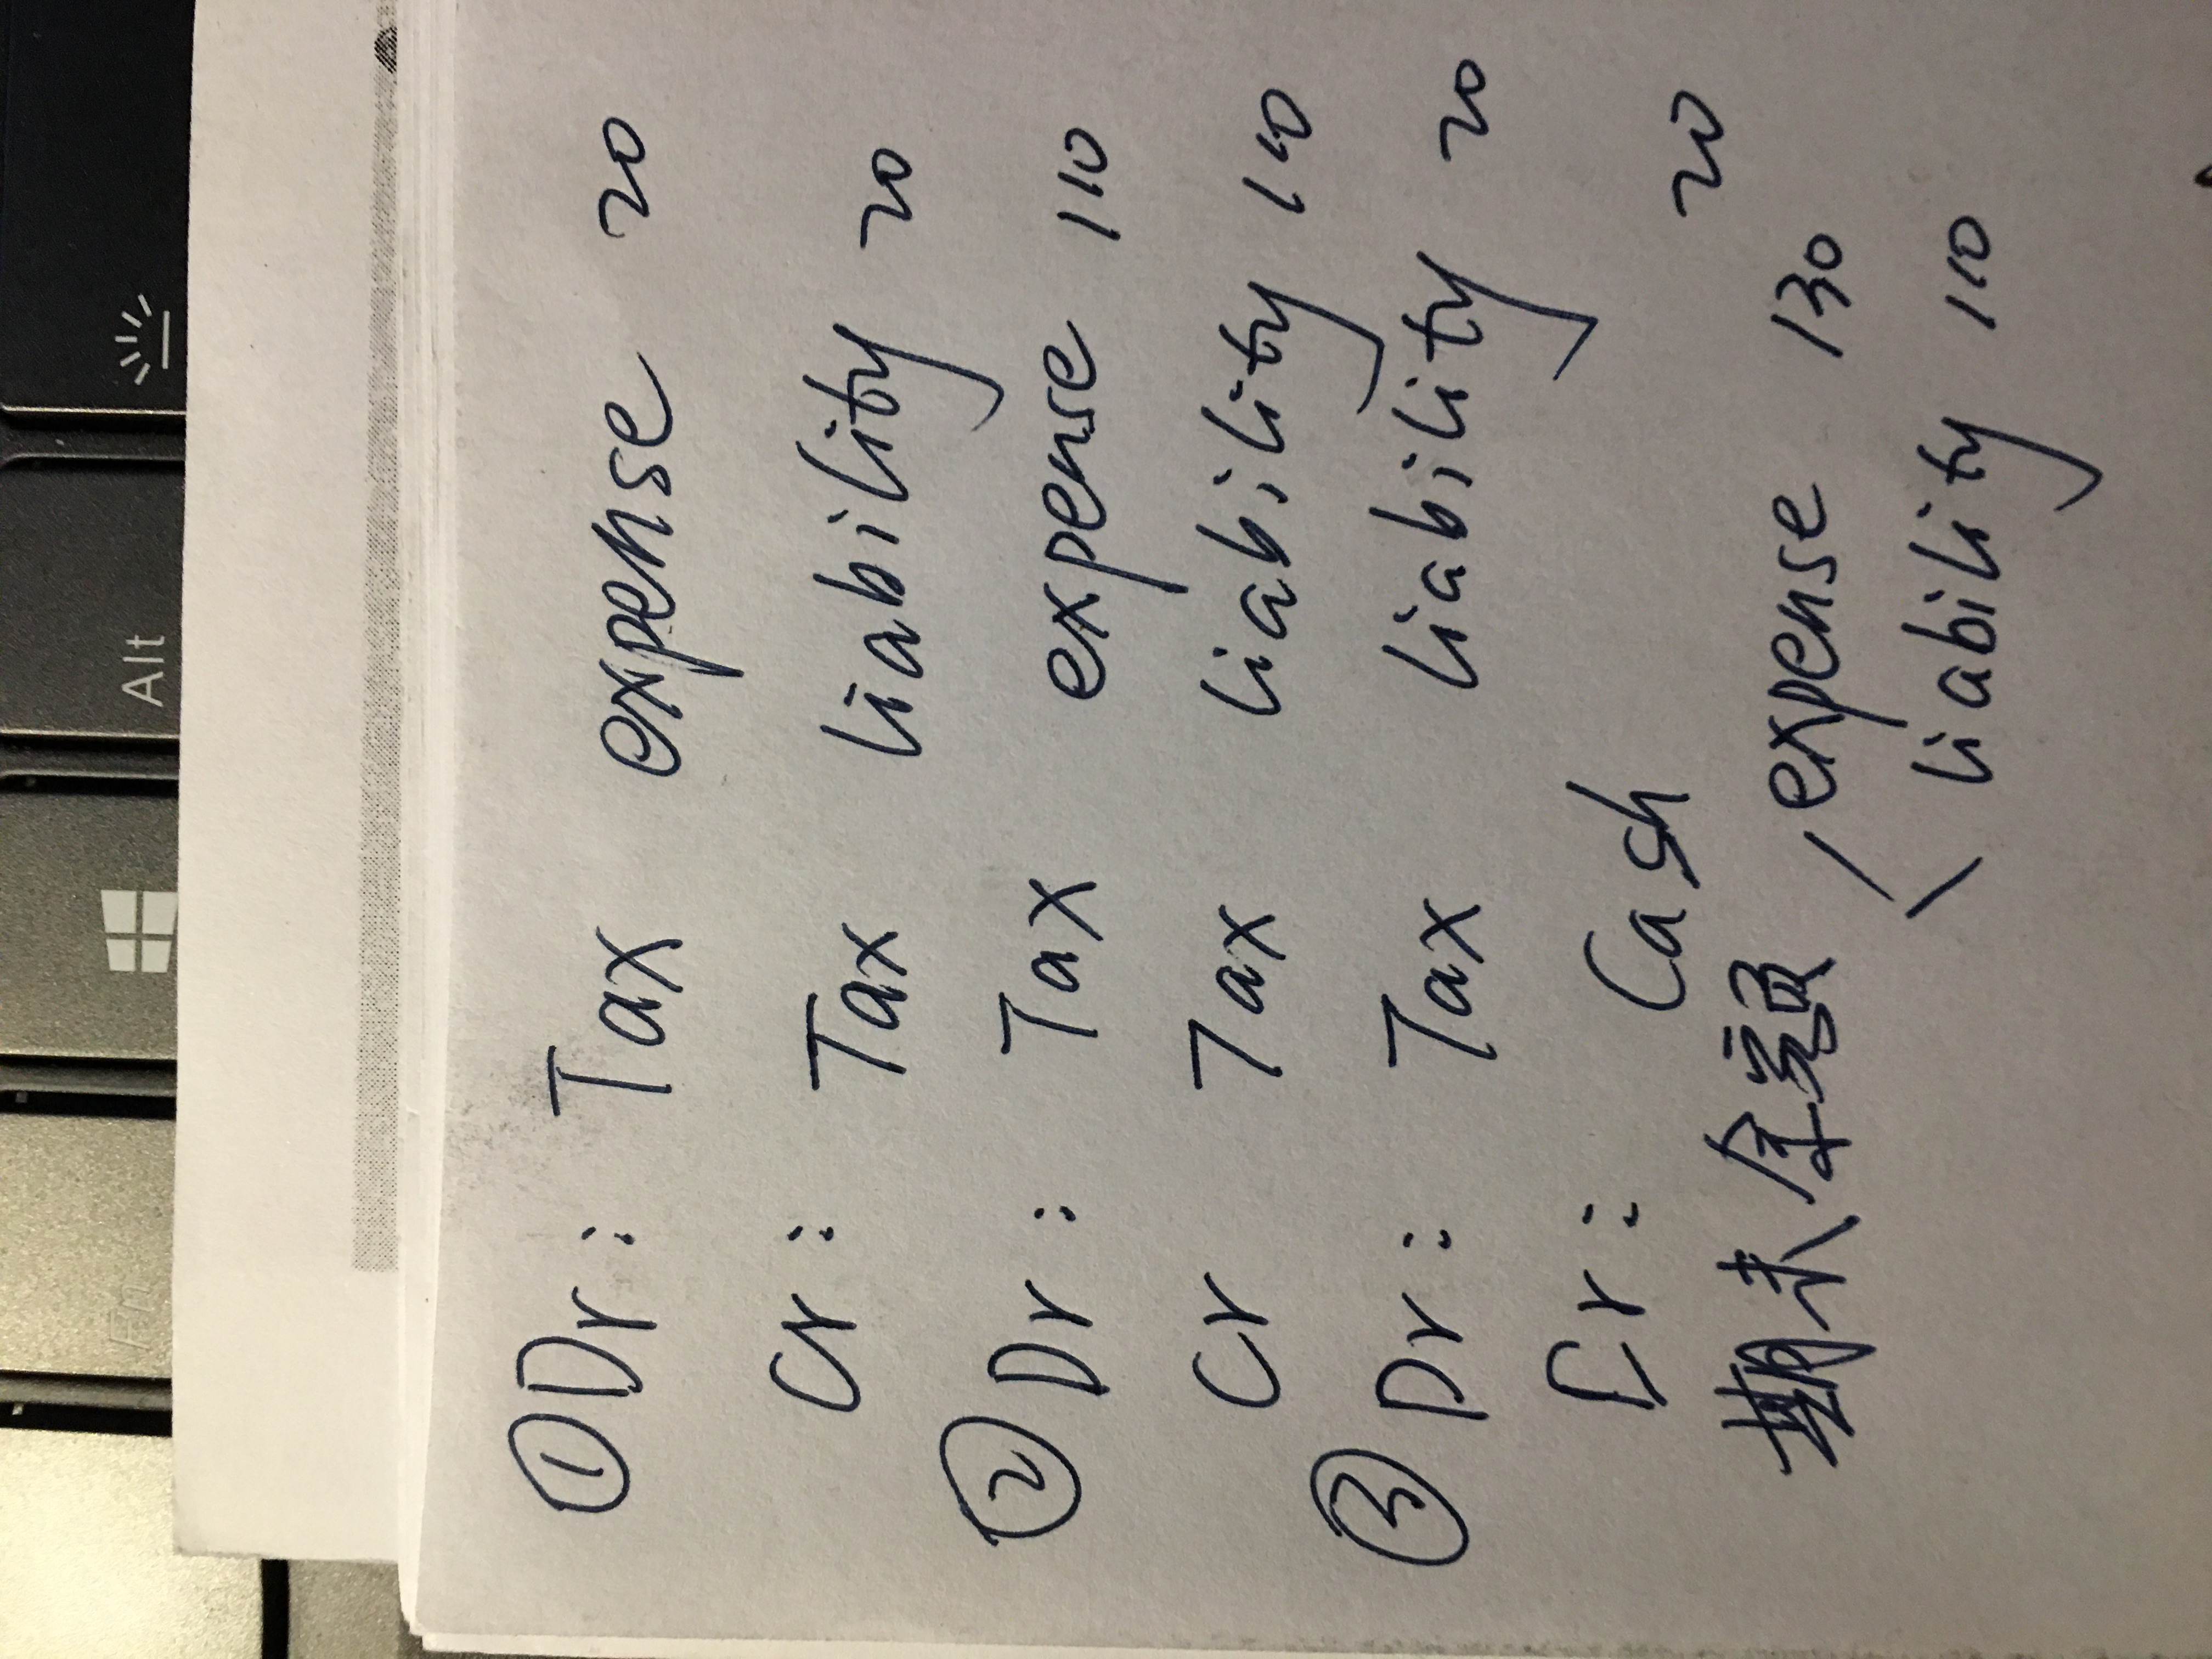 ① Dr: Tax expense 20
Cr: Tax liability 20
② Dr: Tax expense 110
Cr Tax liability 110
③ Dr: Tax liability 20
Cr: Cash 20
期末余额 expense 130
liability 110
Alt
Fn